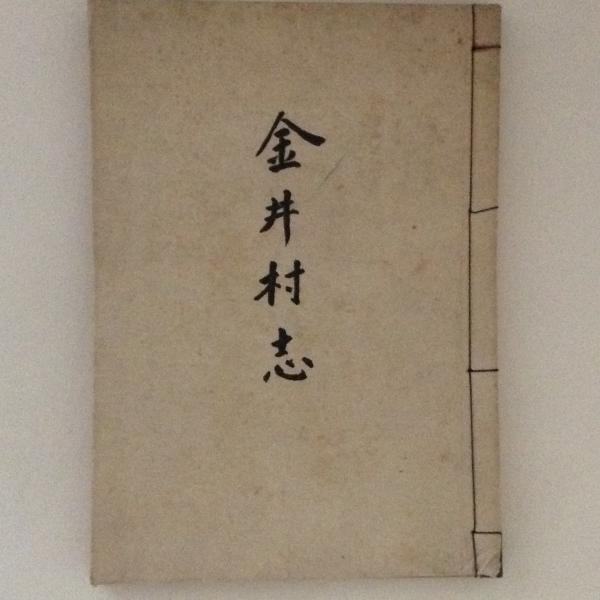 金井村志